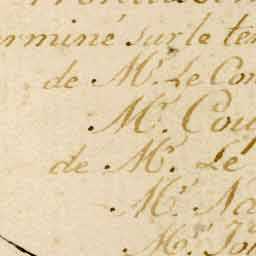 erminé sur le ter
de Mr. Le Con
Mr. Cou
de Mr. Le
Mr. Na
Mr. Tor